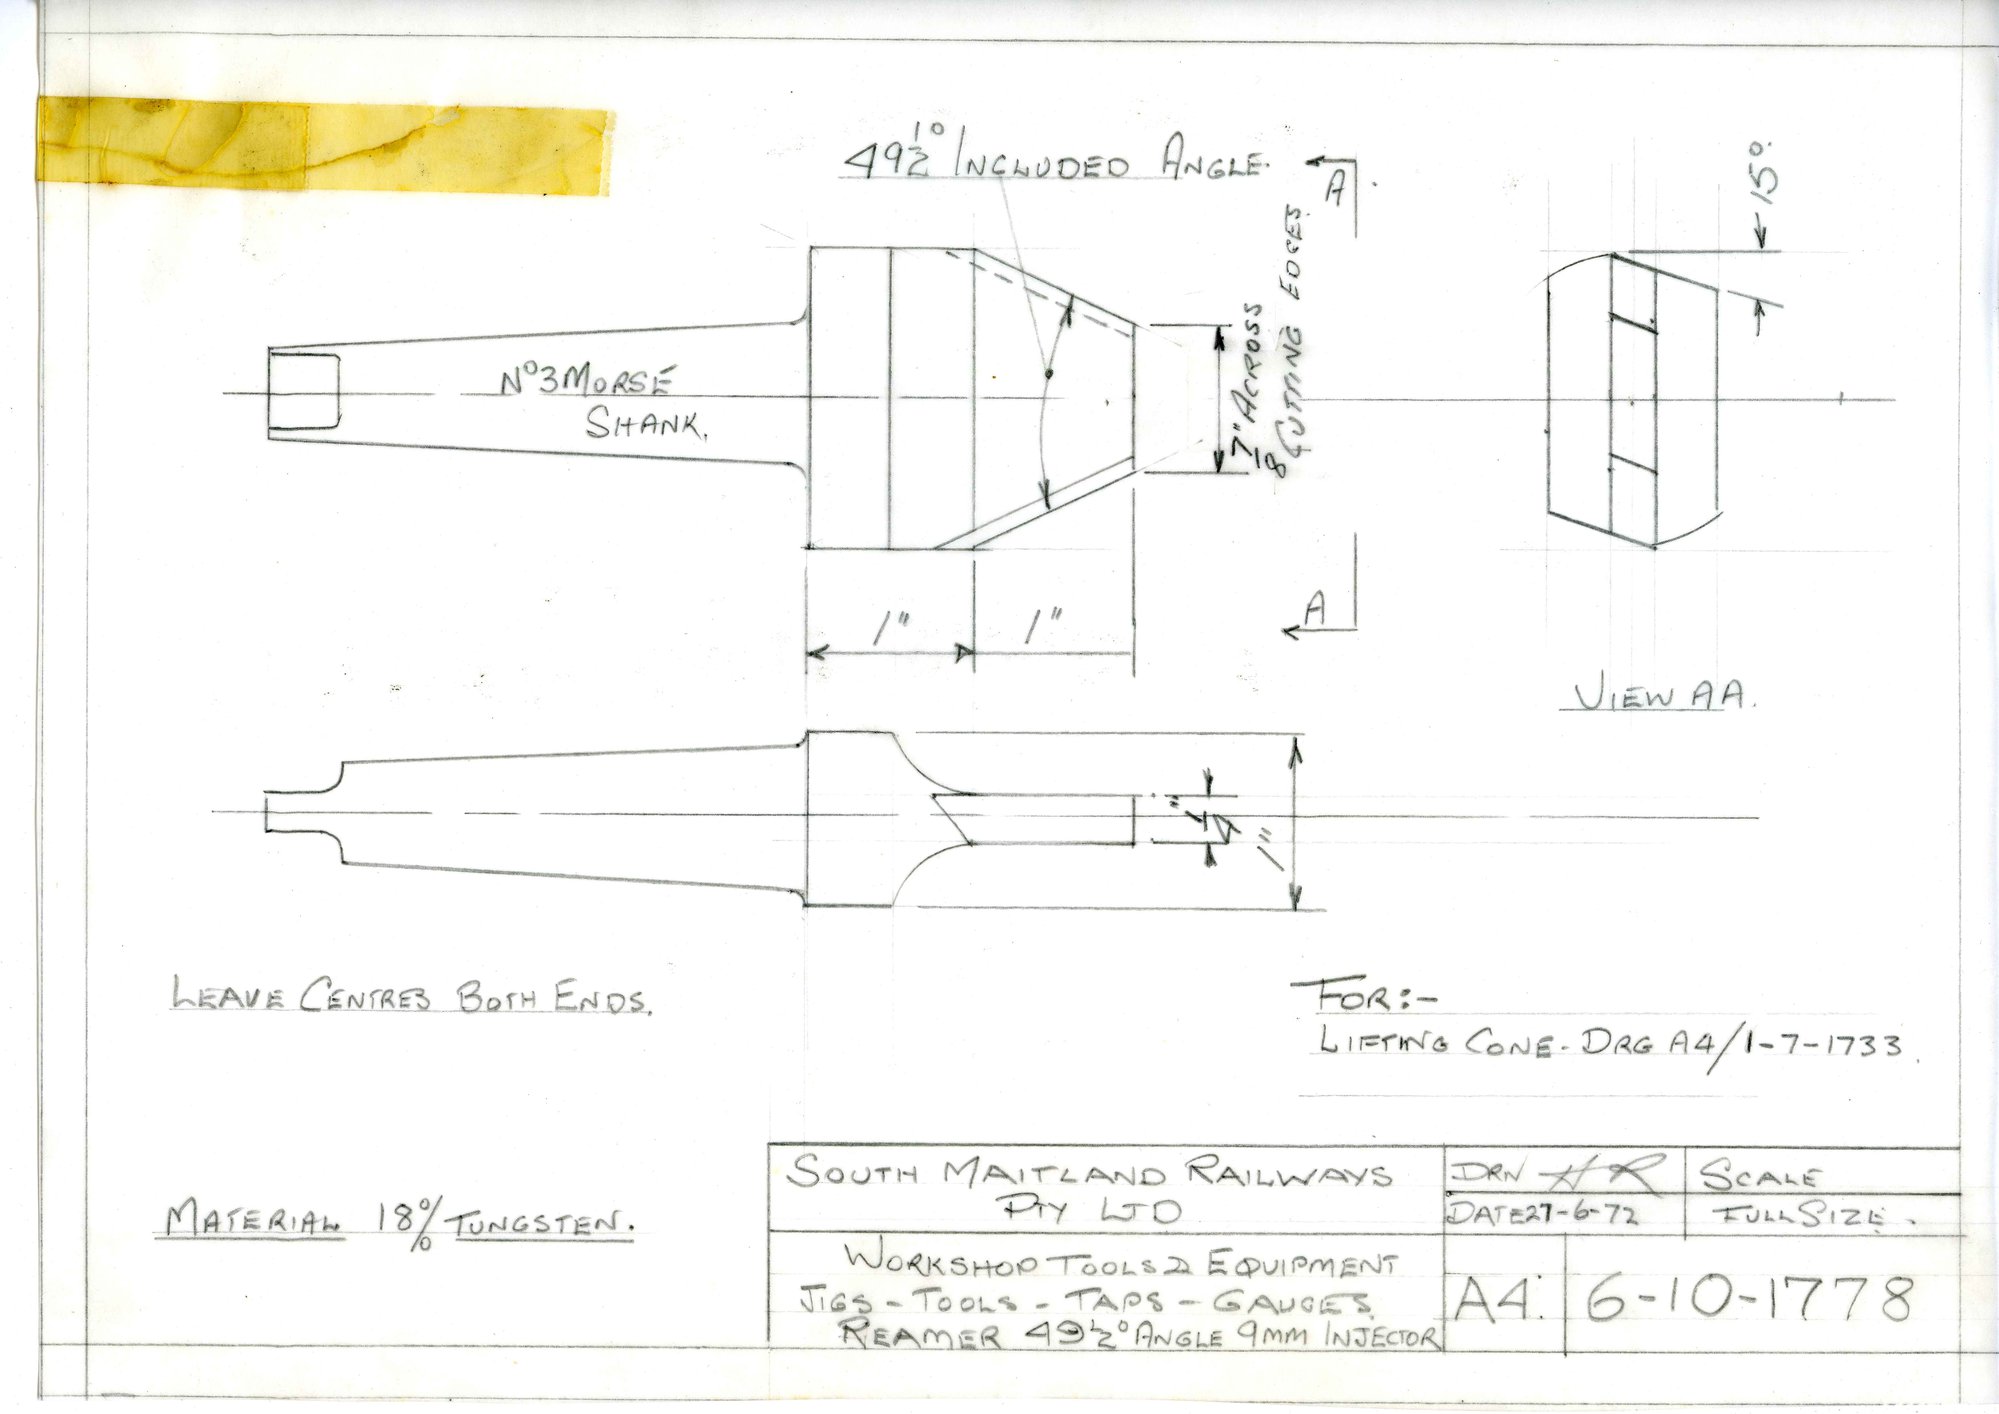 49½° INCLUDED ANGLE.
A
15°
7/8" ACROSS
CUTTING EDGES.
Nº3 MORSE
SHANK.
1" 1"
A
VIEW AA.
1/4"
1"
LEAVE CENTRES BOTH ENDS.
FOR:-
LIFTING CONE - DRG A4/1-7-1733.
MATERIAL 18% TUNGSTEN.
SOUTH MAITLAND RAILWAYS
PTY LTD
DRN HR
SCALE
DATE 27-6-72
FULL SIZE.
WORKSHOP TOOLS & EQUIPMENT
JIGS - TOOLS - TAPS - GAUGES.
REAMER 49½° ANGLE 9MM INJECTOR
A4. 6-10-1778